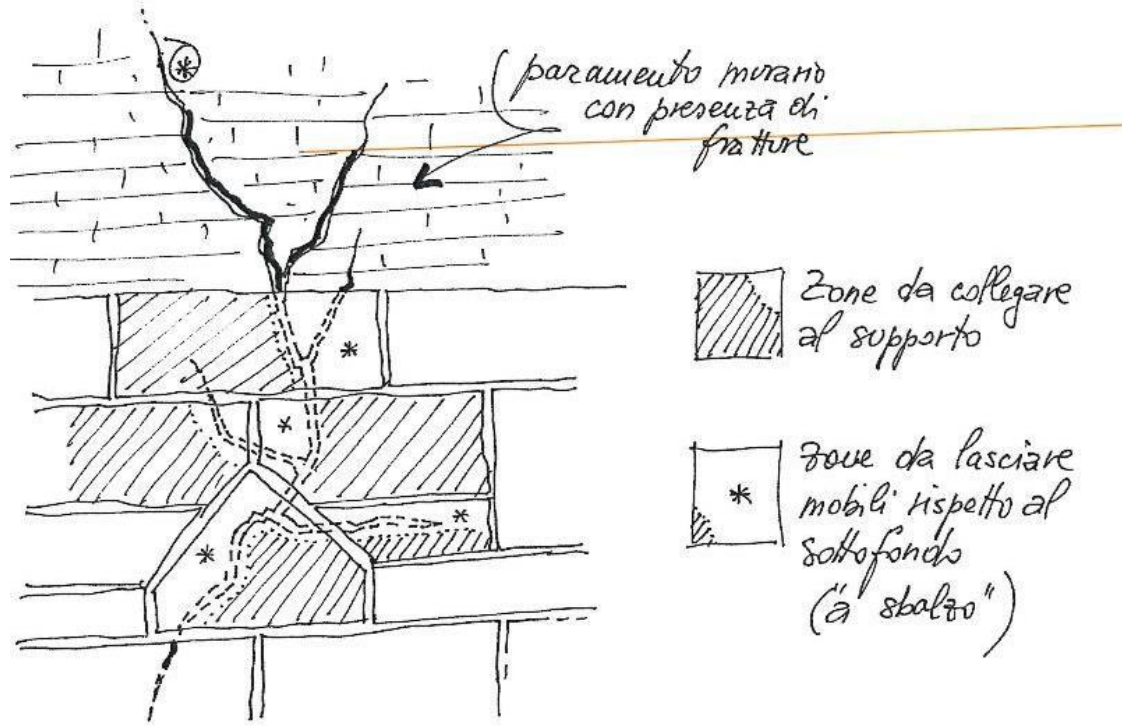 paramento murario
con presenza di
fratture
Zone da collegare
al supporto
zone da lasciare
mobili rispetto al
sottofondo
("a sbalzo")